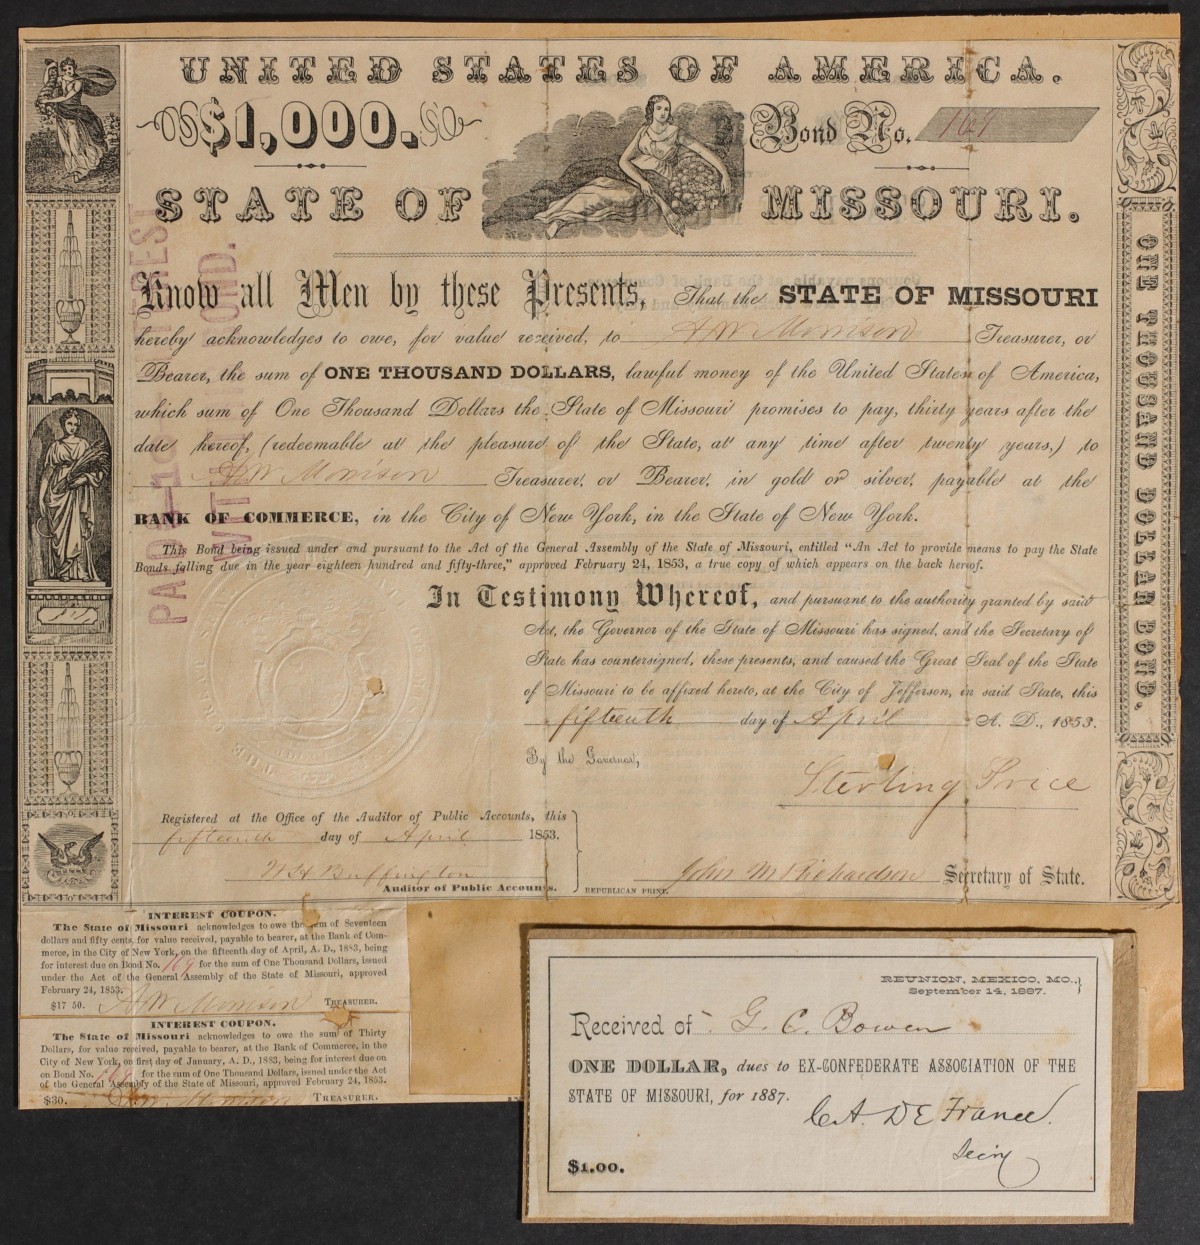 UNITED STATES OF AMERICA.
$1,000.
Bond No. 169
STATE OF MISSOURI.
Know all Men by these Presents, That the STATE OF MISSOURI
hereby acknowledges to owe, for value received, to A W Morrison Treasurer, or
Bearer, the sum of ONE THOUSAND DOLLARS, lawful money of the United States of America,
which sum of One Thousand Dollars the State of Missouri promises to pay, thirty years after the
date hereof, (redeemable at the pleasure of the State, at any time after twenty years,) to
A W Morrison Treasurer, or Bearer, in gold or silver, payable at the
BANK OF COMMERCE, in the City of New York, in the State of New York.
This Bond being issued under and pursuant to the Act of the General Assembly of the State of Missouri, entitled "An Act to provide means to pay the State
Bonds falling due in the year eighteen hundred and fifty-three," approved February 24, 1853, a true copy of which appears on the back hereof.
In Testimony Whereof, and pursuant to the authority granted by said
Act, the Governor of the State of Missouri has signed, and the Secretary of
State has countersigned, these presents, and caused the Great Seal of the State
of Missouri to be affixed hereto, at the City of Jefferson, in said State, this
fifteenth day of April A. D., 1853.
By the Governor,
Sterling Price
Registered at the Office of the Auditor of Public Accounts, this
fifteenth day of April 1853.
W H Buffington
Auditor of Public Accounts.
REPUBLICAN PRINT.
John M Richardson Secretary of State.
ONE THOUSAND DOLLAR BOND.
INTEREST COUPON.
The State of Missouri acknowledges to owe the sum of Seventeen
dollars and fifty cents, for value received, payable to bearer, at the Bank of Com-
merce, in the City of New York, on the fifteenth day of April, A. D., 1883, being
for interest due on Bond No. 169 for the sum of One Thousand Dollars, issued
under the Act of the General Assembly of the State of Missouri, approved
February 24, 1853.
$17 50. A W Morrison TREASURER.
INTEREST COUPON.
The State of Missouri acknowledges to owe the sum of Thirty
Dollars, for value received, payable to bearer, at the Bank of Commerce, in the
City of New York, on first day of January, A. D., 1883, being for interest due on
on Bond No. 169 for the sum of One Thousand Dollars, issued under the Act
of the General Assembly of the State of Missouri, approved February 24, 1853.
$30. A W Morrison TREASURER.
REUNION, MEXICO, MO.,
September 14, 1887.
Received of G. C. Bowen
ONE DOLLAR, dues to EX-CONFEDERATE ASSOCIATION OF THE
STATE OF MISSOURI, for 1887.
C A. DE France.
Secry
$1.00.